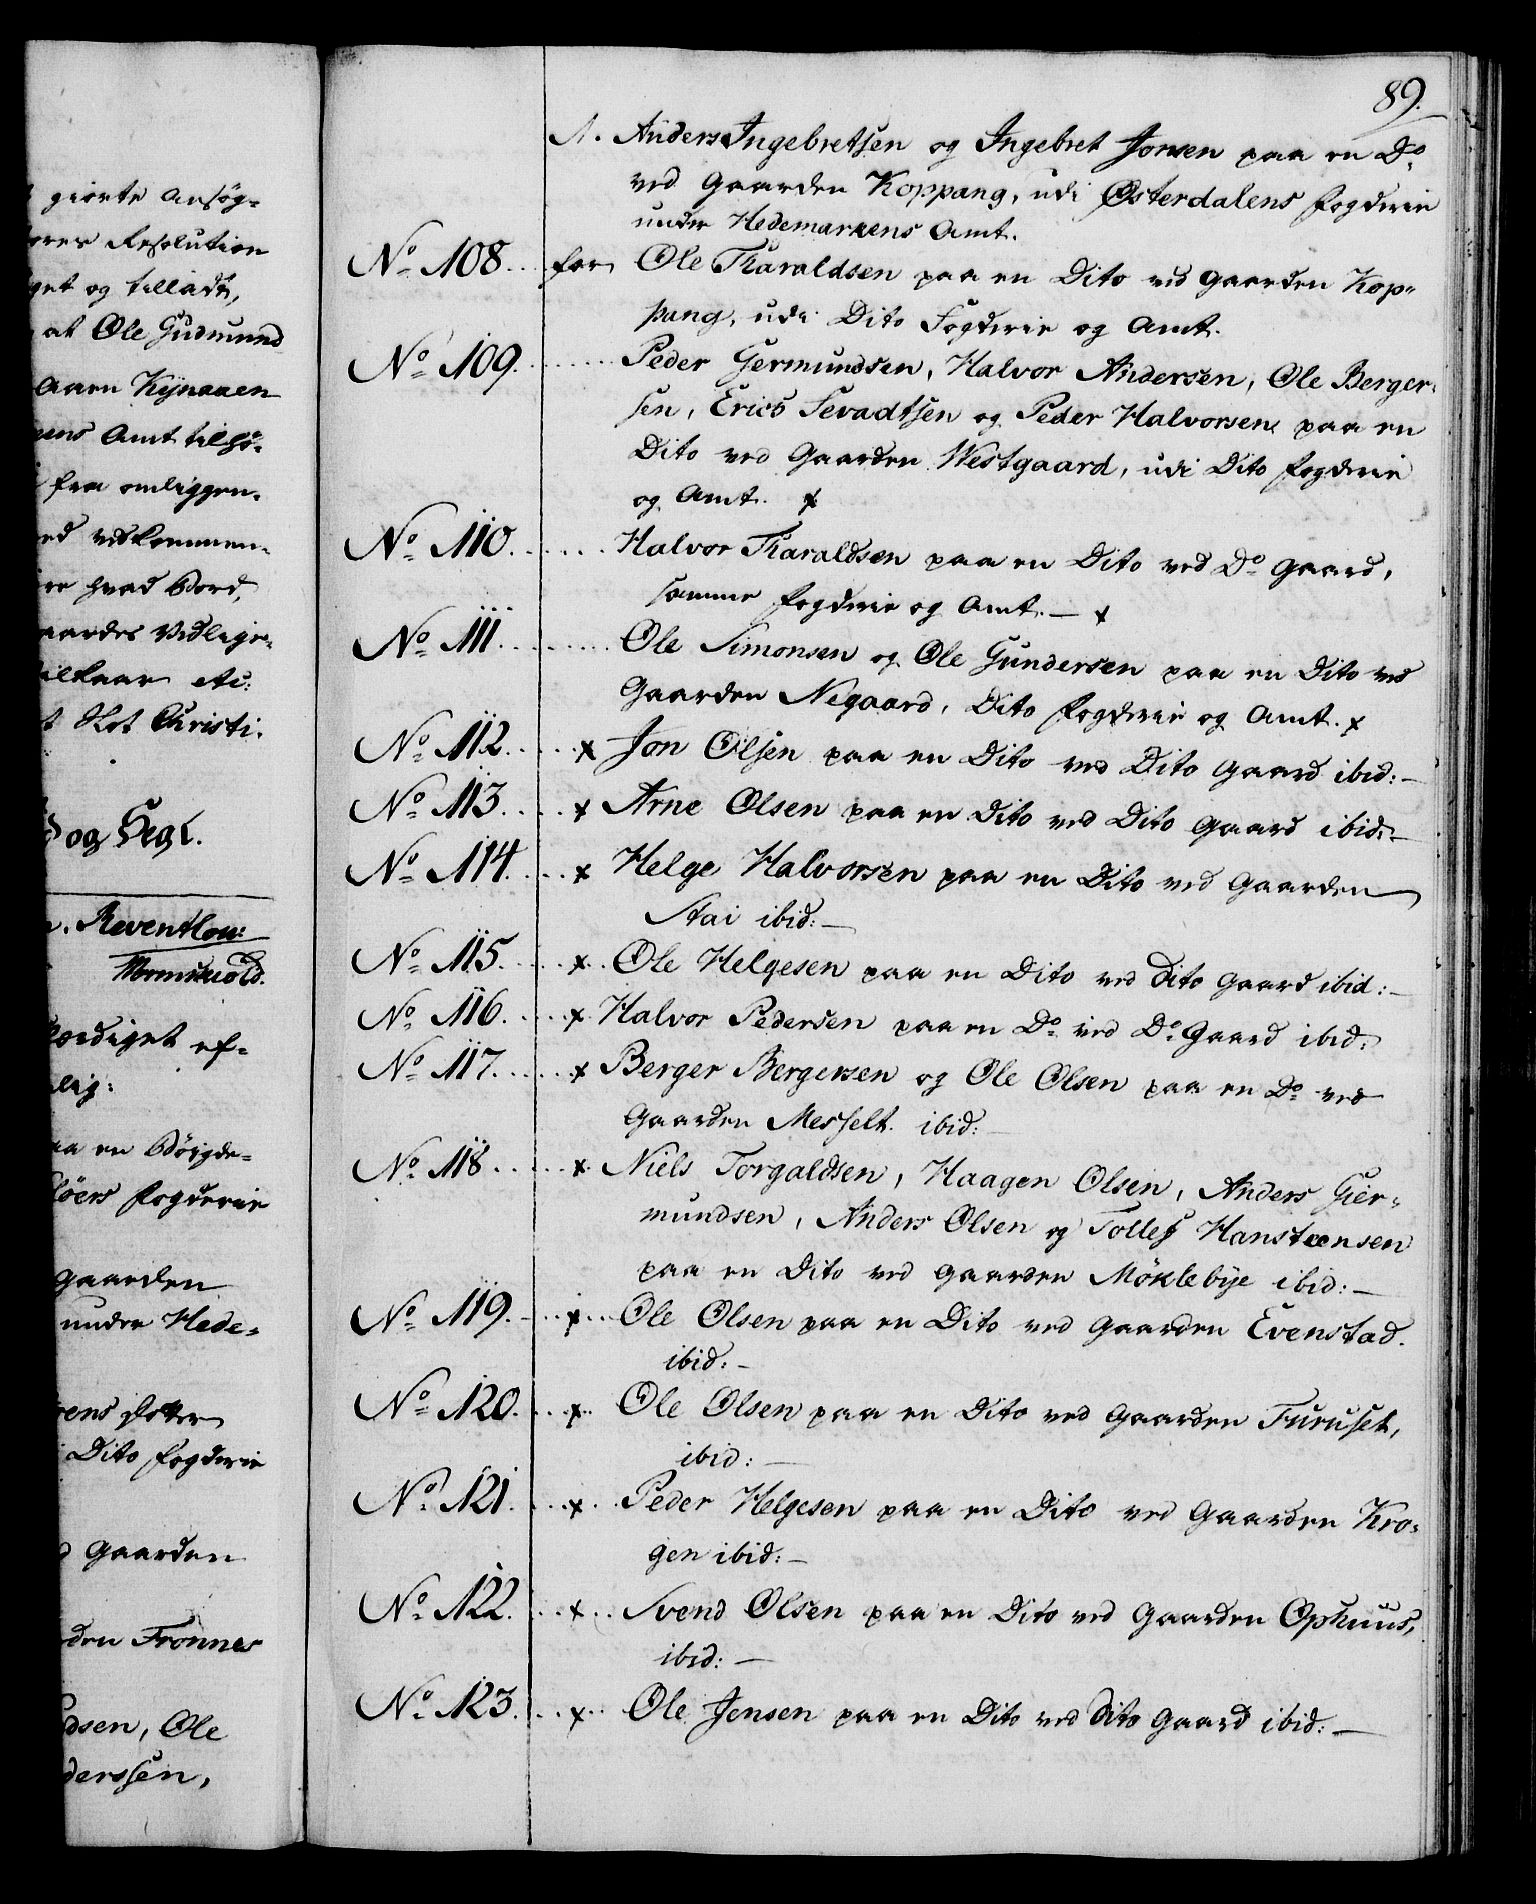 giorte Ansög-
Resolution
get og tilladt,
at Ole Gudmund
Kynaaen
Amt tilhö-
fra omliggen-
vedkommen-
hvad Bord,
Vedlige-
Vilkaar etc:
Slot Christi.
og Segl.
Reventlow:
ef-
lig:
en Böigde-
Fogderie
Gaarden
under Hede-
Dito Fogderie
Gaarden
Fronnes
dsen, Ole
derssen,
89.
Anders Ingebretsen og Ingebret Jonsen paa en Do
ved Gaarden Koppang, udi Østerdalens Fogderie
under Hedemarkens Amt.
No 108... for Ole Tharaldsen paa en Dito ved Gaarden Kop-
pang, udi Dito Fogderie og Amt.
No 109....... Peder Germundsen, Halvor Andersen, Ole Berger-
sen, Erich Sevadtsen og Peder Halvorsen paa en
Dito ved Gaarden Westgaard, udi Dito Fogderie
og Amt. x
No 110....... Halvor Tharaldsen paa en Dito ved Do Gaard,
samme Fogderie og Amt. — x
No 111......... Ole Simonsen og Ole Gundersen paa en Dito ved
Gaarden Negaard, Dito Fogderie og Amt. x
No 112..... x Jon Olsen paa en Dito ved Dito Gaard ibid: —
No 113..... x Arne Olsen paa en Dito ved Dito Gaard ibid: —
No 114.... x Helge Halvorsen paa en Dito ved Gaarden
Stai ibid: —
No 115..... x.. Ole Helgesen paa en Dito ved Dito Gaard ibid: —
No 116..... x. Halvor Pedersen paa en Do ved Do Gaard ibid:
No 117...... x Berger Bergersen og Ole Olsen paa en Do ved
Gaarden Messelt ibid: —
No 118..... x. Niels Torgaldsen, Haagen Olsen, Anders Gier-
mundsen, Anders Olsen og Tollef Hansteensen
paa en Dito ved Gaarden Möklebÿe ibid: —
No 119.... x... Ole Olsen paa en Dito ved Gaarden Evenstad.
ibid: —
No 120.... x.. Ole Olsen paa en Dito ved Gaarden Furuset,
ibid: —
No 121.... x.. Peder Helgesen paa en Dito ved Gaarden Kro-
gen ibid: —
No 122.... x... Svend Olsen paa en Dito ved Gaarden Ophuus,
ibid: —
No 123.... x... Ole Jensen paa en Dito ved Dito Gaard ibid: —